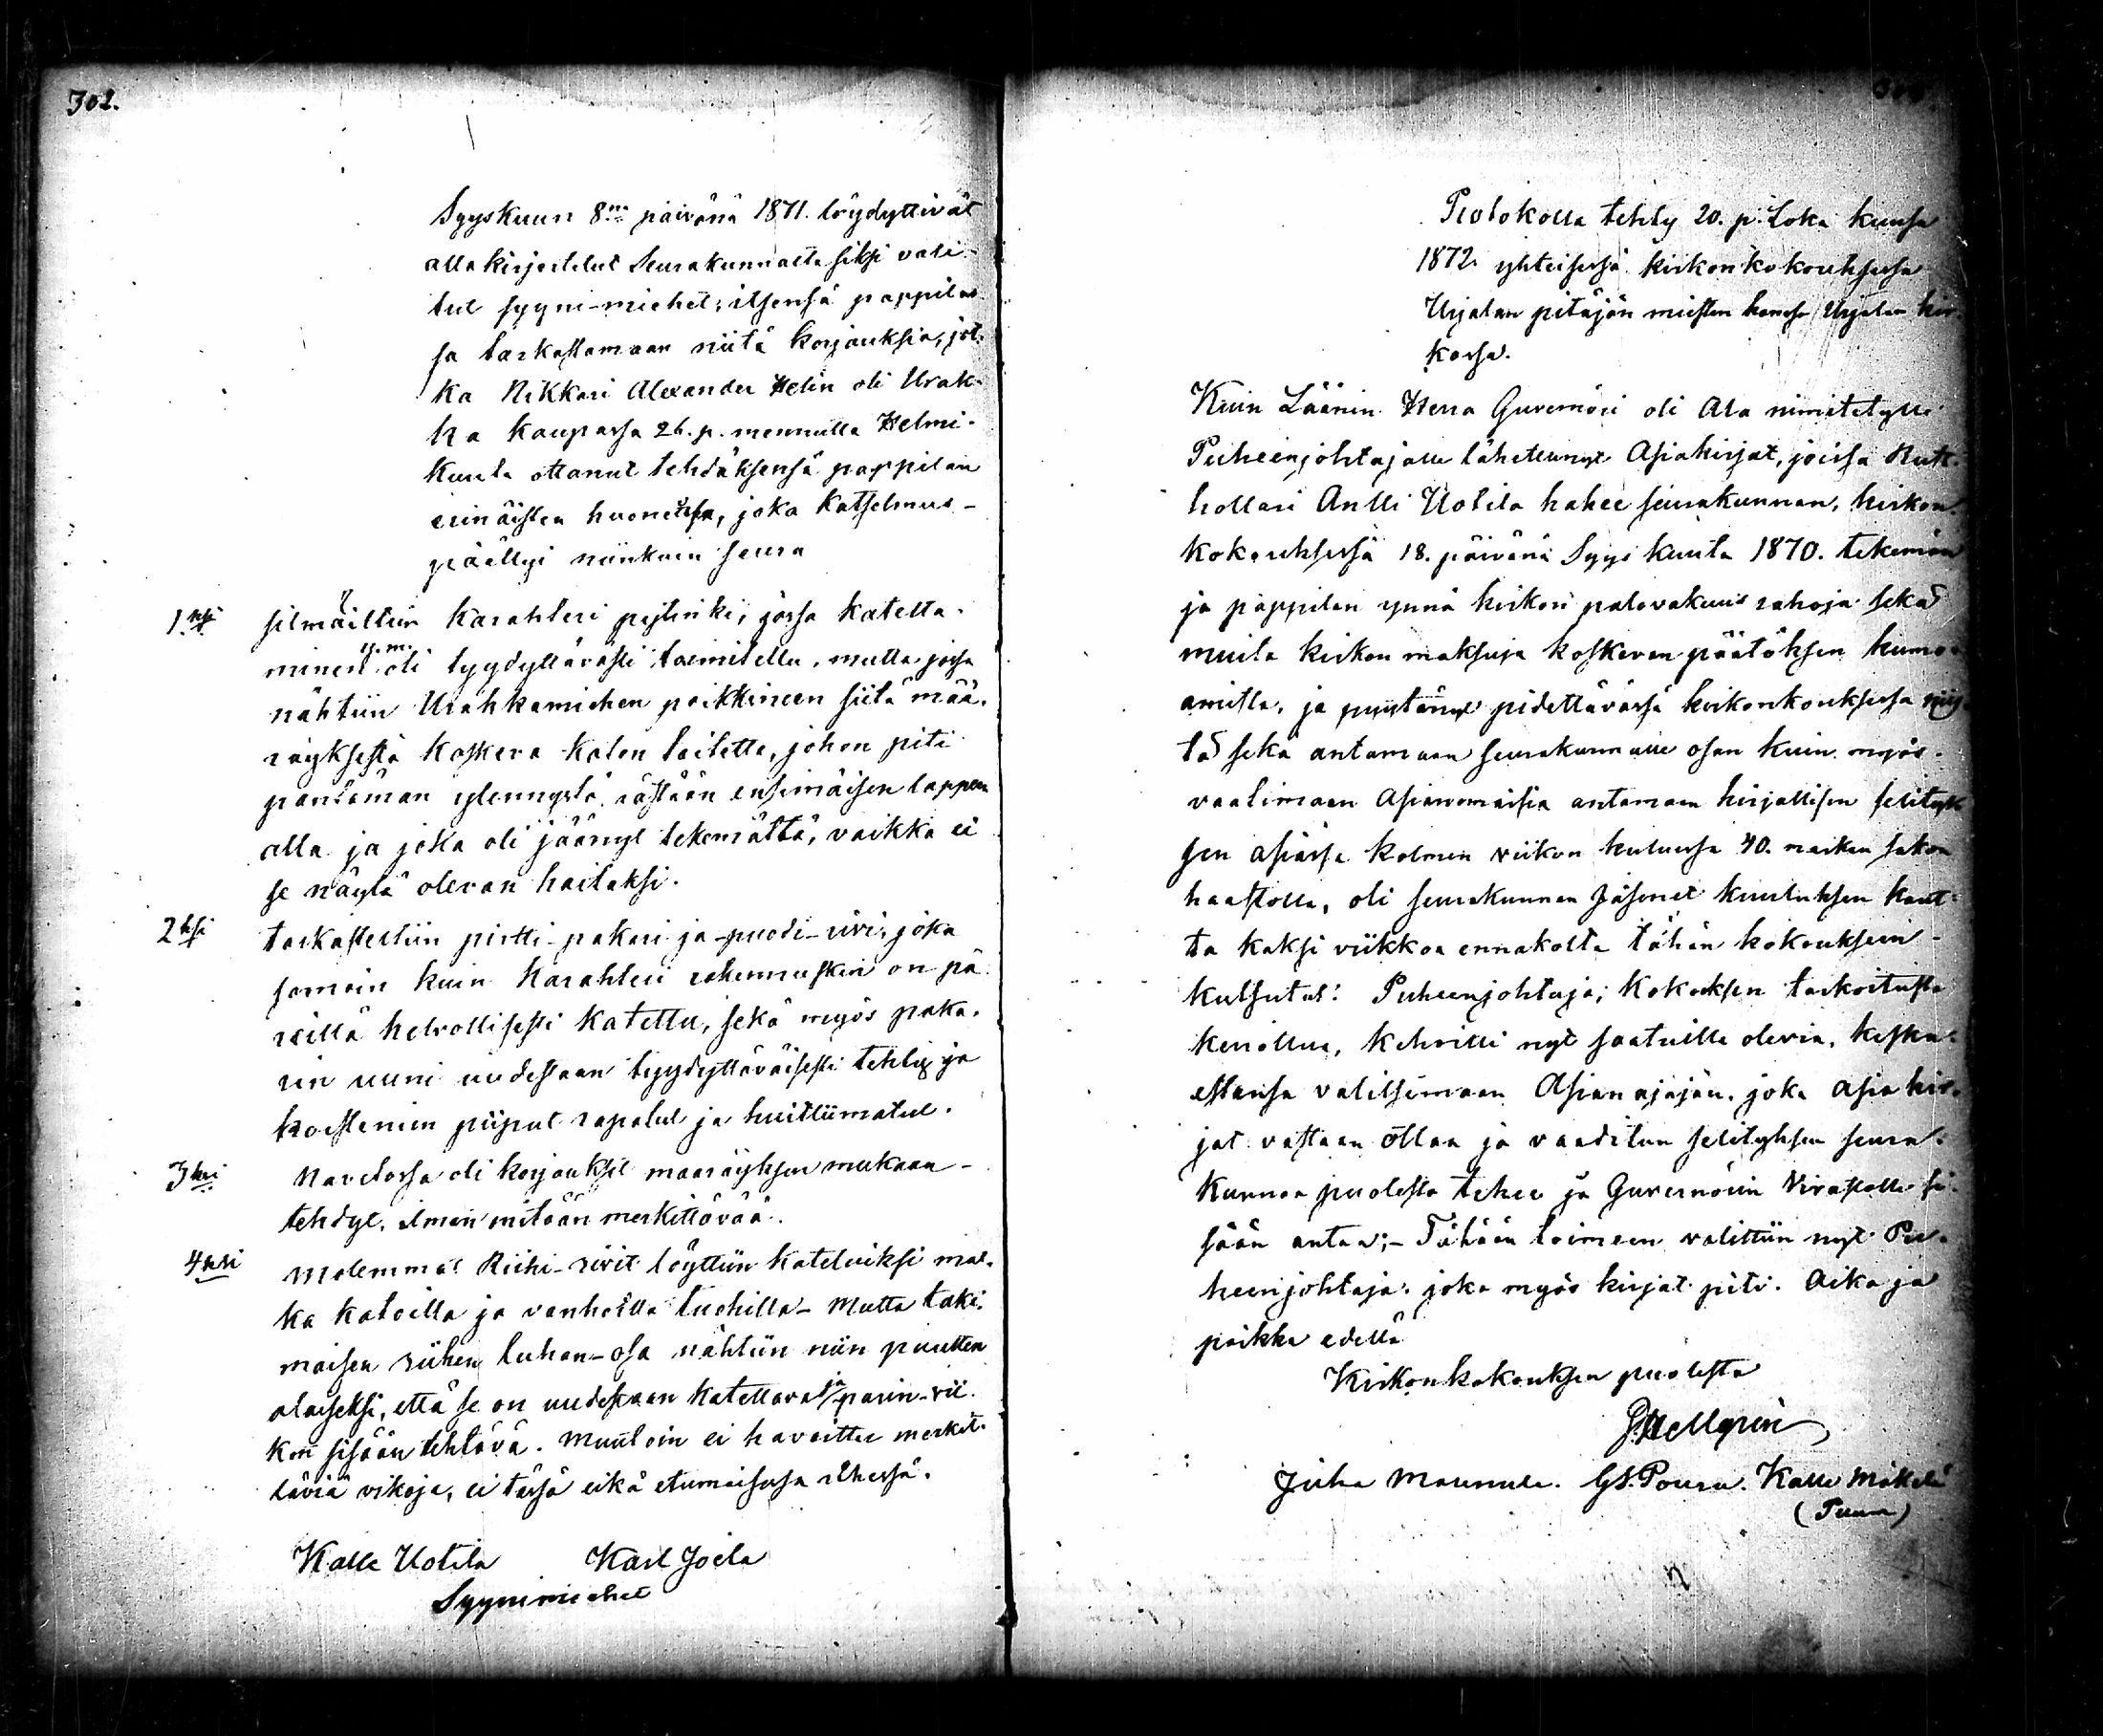 302.
Syyskuun 8na päivänä 1871. löydyttivät
allakirjoitetut Seurakunnalta siksi vali-
tut syyni-miehet; itsensä pappilas-
sa tarkastamaan niitä korjauksia, jot-
ka Nikkari Alexander Helin oli Urak-
ka kaupassa 26. p. mennutta Helmi-
kuuta ottanut tehdäksensä pappilan
erinäisten huoneissa, joka katselmus-
päällyi niinkuin seura
1ksi silmäiltiin Karahteri pystinki, jossa katetta-
minen y.m. oli tyydyttävästi toimitettu, mutta jossa
nähtiin Urahkamiehen poikkineen siitä mää-
räyksestä koskeva katon laitetta, johon piti
pantaman ylennystä rästään ensimäisen lappen
alla ja joka oli jäänyt tekemättä, vaikka ei
se näytä olevan haitaksi.
2ksi tarkastettiin pirtti-pakari ja-puodi-rivi, joka
samoin kuin Karahteri rakennuskin on pä-
reillä kelvollisesti katettu, sekä myös paka-
rin uuni uudestaan tyydyttäväisesti tehty ja
korstenin piiput rapatut ja huittiimatut.
3ksi Navetossa oli korjaukset maaräyksen mukaan-
tehdyt, ilman mitään merkittävää.
4ksi Molemmat Riihi-rivit löyttiin katetuiksi mal-
ka katoilla ja vanhoilla tuohilla- Mutta taki-
maisen riihen luhan-osa nähtiin niin puutten
alaiseksi, että se on uudestaan katettava ja parin-vii-
kon sisään tehtävä. Muutoin ei havaittu merkit-
täviä vikoja, ei tässä eikä etumaisessa rihessä.
Kalle Uotila Karl Joela
Syynimiehet
Protokolla tehty 20. p. Loka kuussa
1872 yhteisessä kirkonkokouksessa
Urjalan pitäjän miesten kanssa Urjalan kir-
kossa.
Kuin Läänin Herra Guvernöri oli Ala nimitetylle
Puheenjohtajalle lähettänyt Asiakirjat, joissa Rust-
hollari Antti Uotila hakee seurakunnan, kirkon-
kokouksessa 18. päivänä Syys kuuta 1870. tekemän
ja pappilan ynnä kirkon palovakuus rahoja sekä
muita kirkon maksuja koskevan päätöksen kumo-
amista, ja pidettävässä kirkonkouksessa
tä sekä antamaan seurakunnalle osan kuin myös
vaatimaan Asianomaisia antamaan kirjallisen selityk-
sen asiassa kolmen viikon kuluessa 40. markan sakon
haastolla, oli seurakunnan Jäsenet kuulutksen kaut-
ta kaksi viikkoa ennakolta tähän kokouksein
kutsutut: Puheenjohtaja; Kokouksen tarkoitusta
kerrottua, kehoitti nyt saatuilla olevia, keska-
estansa valitsemaan Asianajajan, joka Asia kir-
jat vastaan ottaa ja vaaditun selityksen seura-
kunnan puolesta tekee ja Guvernörin Virastolle si-
sään antaa;- Tähään toimeen valittiin nyt Pu-
heenjohtaja, joka myös kirjat piti. Aika ja
paikka edellä
Kirkonkokouksen puolesta
G Hellgren
Juha Maunula. Gs. Poura. Kalle Mäkelä